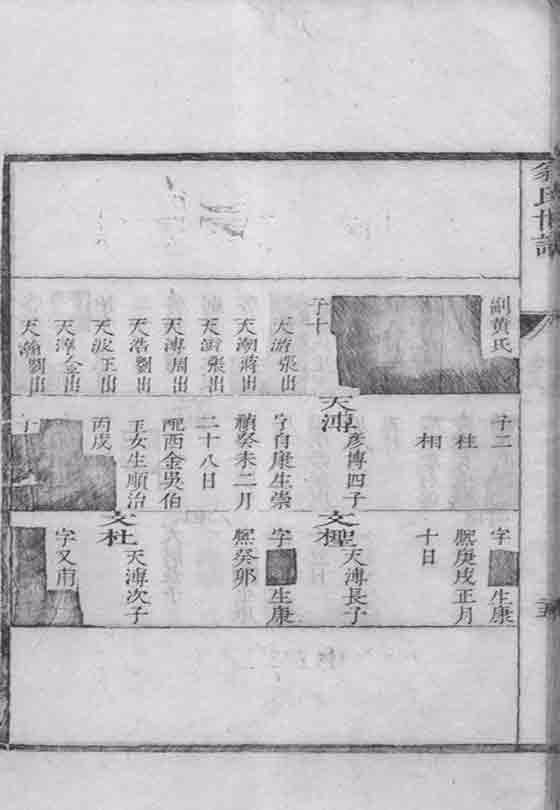 翁氏世譜
副黄氏
子十
天游張出
天潮蔣出
天滋張出
天溥周出
天浩劉出
天波王出
天淳金出
天瀚劉出
子二
柱
相
天溥
彥博四子
字自康生崇
禎癸未二月
二十八日
配西金吳伯
玉女生順治
丙戌
子
字
生康
熙庚戌正月
十日
天溥長子
字
生康
熙癸卯
文杜
天溥次子
字又甫